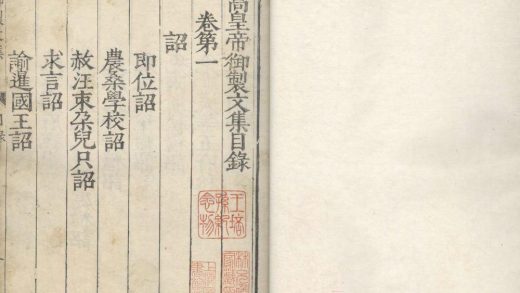 高皇帝御製文集目錄
卷第一
詔
即位詔
農桑學校詔
赦汪束朶兒只詔
求言詔
諭暹國王詔